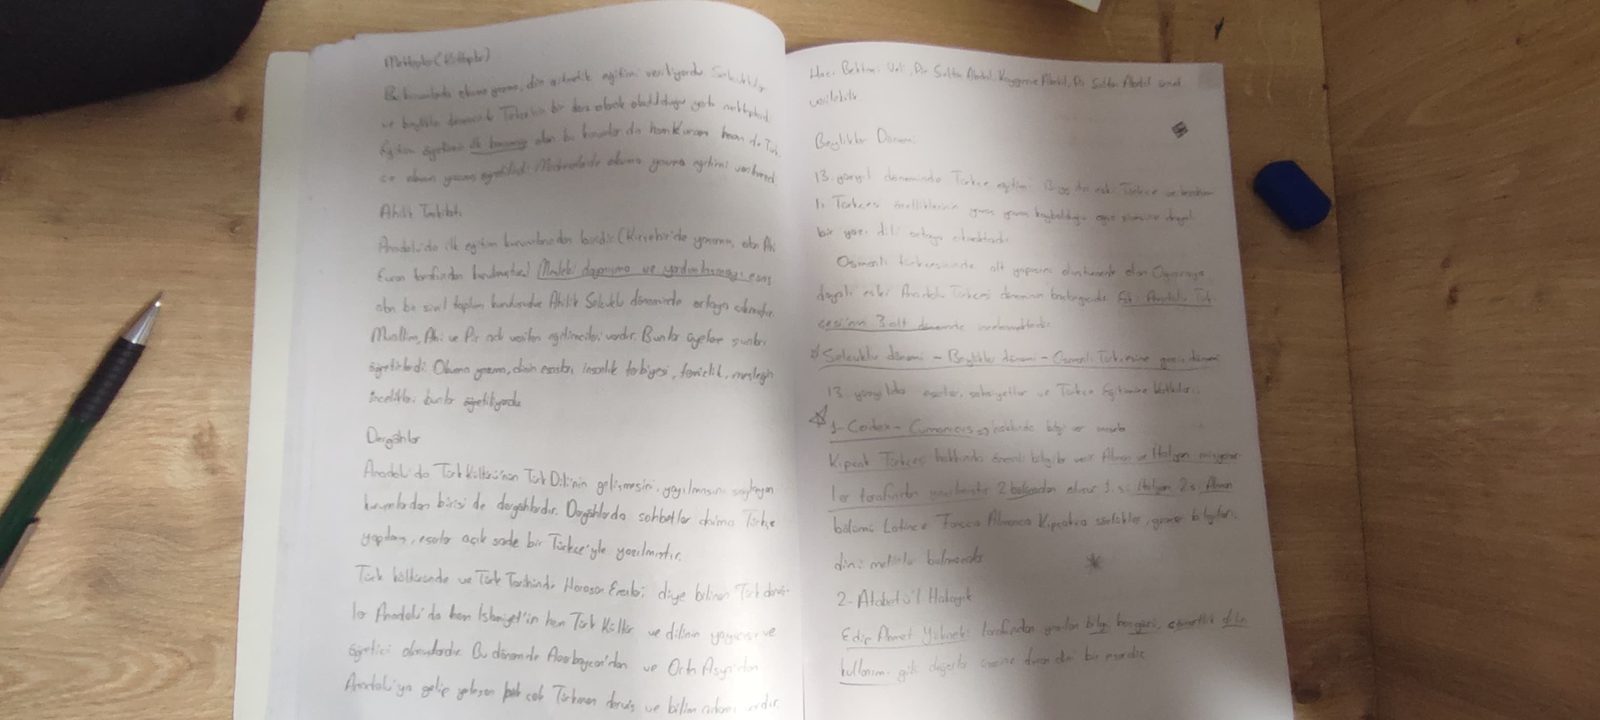 Mektepler (Küttaplar)
Bu kurumlarda okuma yazma, din aritmetik eğitimi veriliyordu. Selçuklular
ve beylikler döneminde Türkçenin bir ders olarak okutulduğu yerler mekteplerdi
Eğitim öğretimin ilk basamağı olan bu kurumlar da hem Kuranı hem de Türk
çe okuma yazma öğretildi. Medreselerde okuma yazma eğitimi verilmezdi
Ahilik Teşkilatı
Anadolu'da ilk eğitim kurumlarından biridir (Kırşehir'de yaşamış olan Ahi
Evran tarafından kurulmuştur) Mesleki dayanışma ve yardımlaşmayı esas
alan bu sivil toplum kuruluşudur Ahilik Selçuklu döneminde ortaya çıkmıştır
Muallim, Ahi ve Pir adı verilen eğitimcileri vardır. Bunlar üyelere şunları
öğretirlerdi: Okuma yazma, dinin esasları, insanlık terbiyesi, temizlik, mesleğin
incelikleri bunlar öğretiliyordu
Dergâhlar
Anadolu'da Türk Kültürü'nün Türk Dili'nin gelişmesini, yayılmasını sağlayan
kurumlardan birisi de dergâhlardır. Dergâhlarda sohbetler daima Türkçe
yapılmış, eserler açık sade bir Türkçe'yle yazılmıştır.
Türk kültüründe ve Türk Tarihinde Horosan Erenleri diye bilinen Türk derviş-
ler Anadolu'da hem İslamiyet'in hem Türk Kültür ve dilinin yayıcısı ve
öğretici olmuşlardır. Bu dönemde Azerbaycan'dan ve Orta Asya'dan
Anadolu'ya gelip yerleşen pek çok Türkmen derviş ve bilim adamı vardır.
Hacı Bektaşi Veli, Pir Sultan Abdal, Kaygusuz Abdal, Pir Sultan Abdal örnek
verilebilir.
Beylikler Dönemi
13. yüzyıl döneminde Türkçe eğitimi: eski Türkçe ve
lı Türkçesi özelliklerinin yavaş yavaş kaybolduğu
bir yazı dili ortaya çıkmaktadır
Osmanlı türkçesinin alt yapısını oluşturan Oğuzcaya
dayalı eski Anadolu Türkçesi döneminin başlangıcıdır Eski Anadolu Türk
çesinin 3 alt dönemde incelenmektedir
Selçuklu dönemi - Beylikler dönemi - Osmanlı Türkçesine geçiş dönemi
13. yüzyılda eserler, şahsiyetler ve Türkçe Eğitimine katkıları
1- Codex - Cumanicus => hakkında bilgi ver
Kıpçak Türkçesi hakkında önemli bilgiler verir Alman ve İtalyan misyoner
ler tarafından yazılmıştır 2 bölümden oluşur 1. si İtalyan 2. si Alman
bölümü Latince Farsça Almanca Kıpçakça sözlükler, gramer bilgileri,
dini metinler bulunmakta
2- Atabetü'l Hakayık
Edip Ahmet Yükneki tarafından yazılan bilgi cömertlik dilin
kullanımı gibi değerler üzerine duran dini bir eserdir